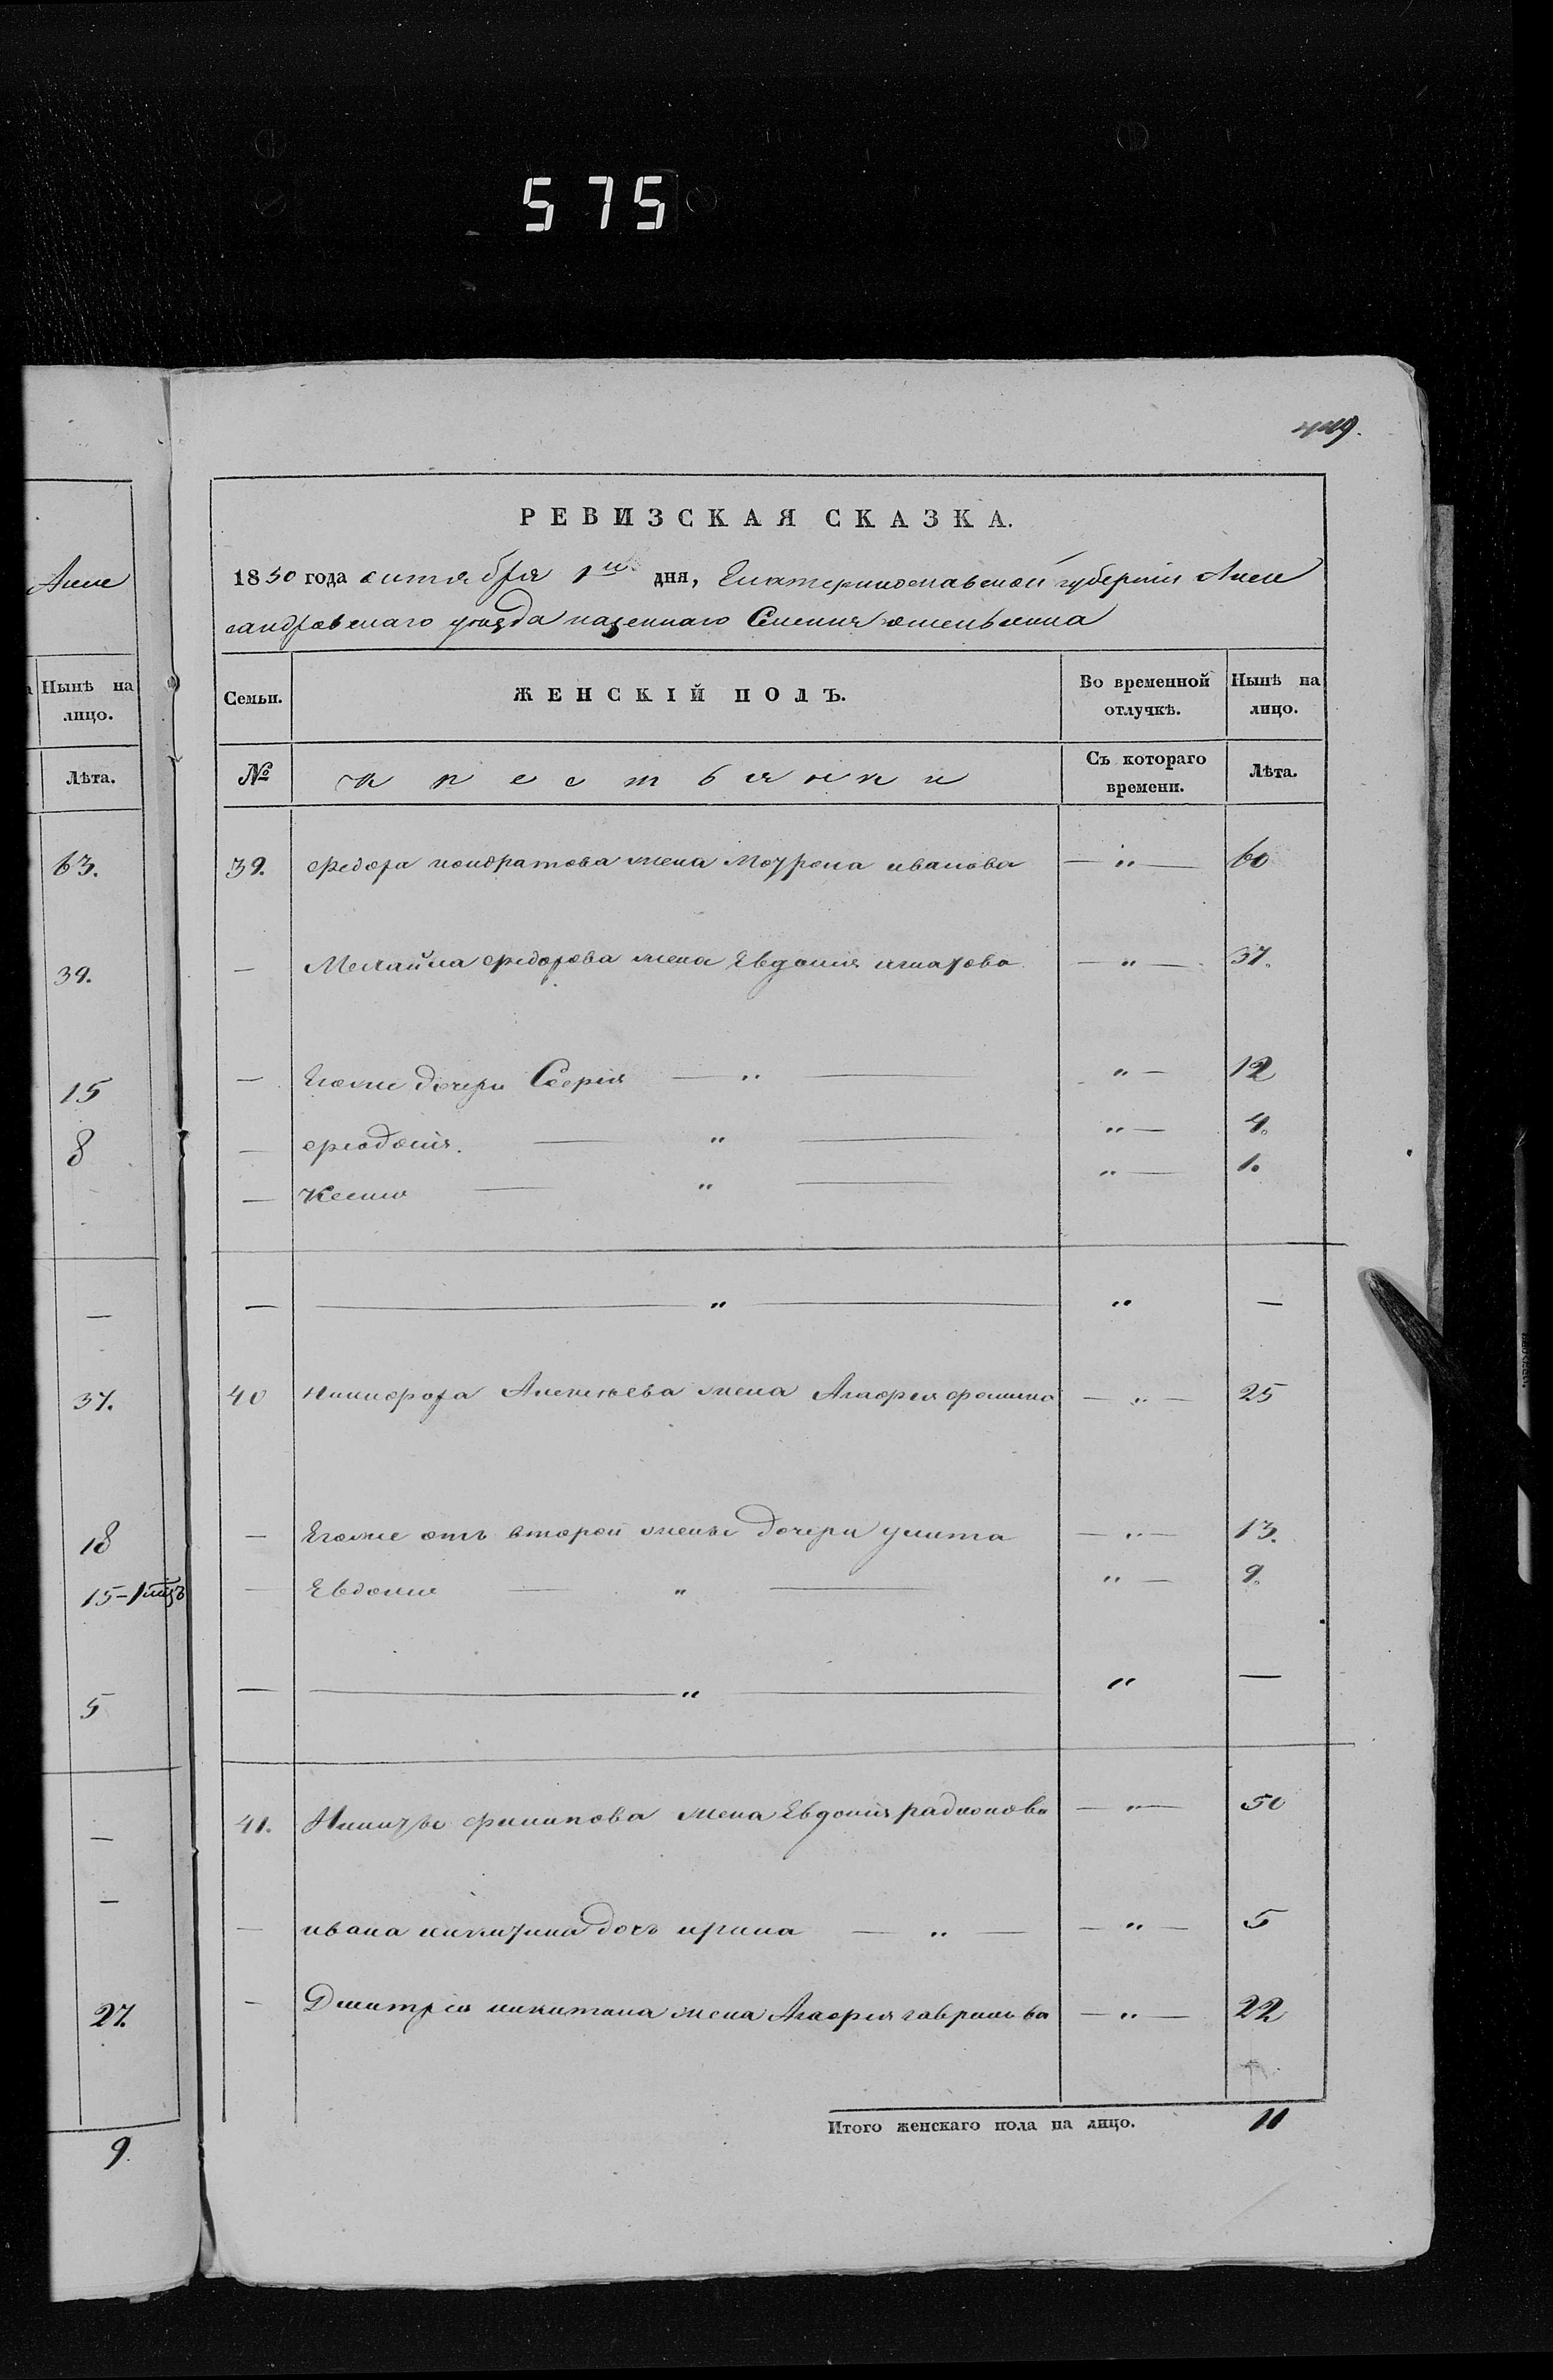 575
449.
Алек
Нынѣ на
лицо.
Лѣта.
63.
39.
15
8
—
37.
18
15-1 мцъ
5
—
—
27.
9.
РЕВИЗСКАЯ СКАЗКА.
1850 года октября 1го дня, Екатеринославской губернiи Алек
сандровскаго уѣзда казеннаго Селенiя
Семьи. ЖЕНСКІЙ ПОЛЪ. Во временной отлучкѣ. Нынѣ на лицо.
№ крестьянки Съ котораго времени. Лѣта.
39. Федора кондратова жена Мотрона иванова — " — 60
— Михайла федорова жена Евдокия — " — 37.
— Егоже дочери Софiя — " — " — 12
— феодосiя. — " — " — 4.
— Ксения — " — " — 1.
— — " — " —
40 Никифора Алексѣева жена Агафия фомина — " — 25
— Егоже отъ второй жены дочери улита — " — 13.
— Евдокия — " — " — 9.
— — " — " —
41. Никиты филипова жена Евдокiя радионова — " — 50
— ивана никитина дочь ирина — " — — " — 5
— Дмитрiя никитина жена Агафия гаврилова — " — 22
Итого женскаго пола на лицо. 11